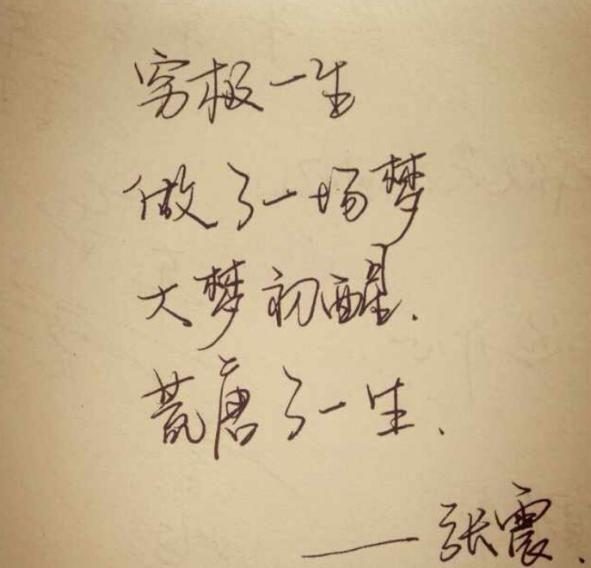 穷极一生
做了一场梦
大梦初醒.
荒唐了一生.
——张震.